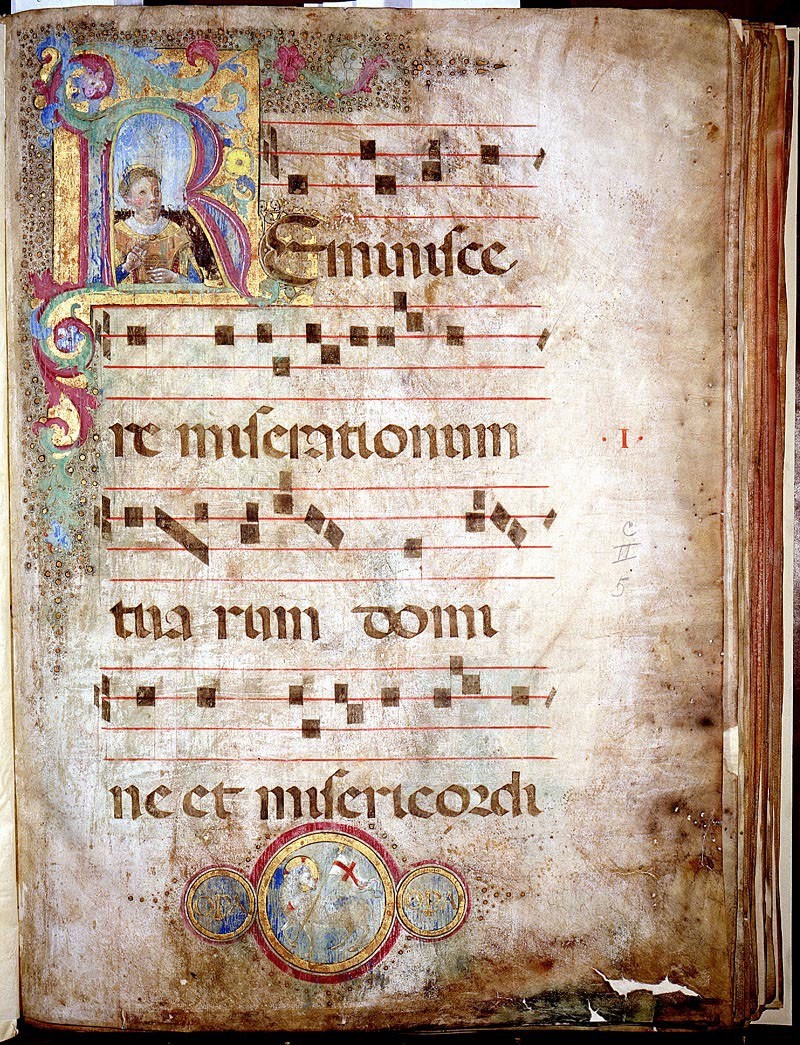 REminisce
re miserationum
· I ·
tua rum domi
C
II
5
ne et misericordi
OPA
OPA